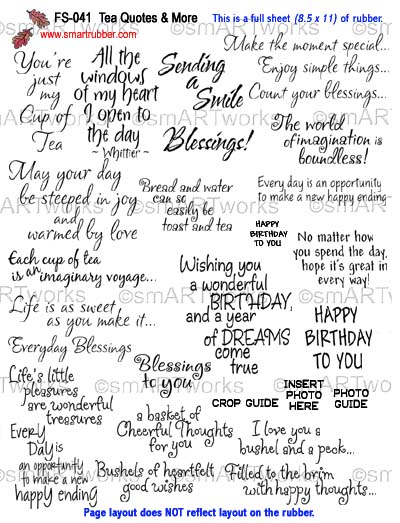 FS-041 Tea Quotes & More
This is a full sheet (8.5 x 11) of rubber.
www.smartrubber.com
You're
just
my
Cup of
Tea
All the
windows
of my heart
I open to
the day
~ Whittier ~
Sending
a
Smile
Blessings!
Make the moment special...
Enjoy simple things...
Count your blessings...
The world
of imagination is
boundless!
May your day
be steeped in joy
and
warmed by love
Bread and water
can so
easily be
toast and tea
Every day is an opportunity
to make a new happy ending
HAPPY
BIRTHDAY
TO YOU
No matter how
you spend the day,
hope it's great in
every way!
Each cup of tea
is an imaginary voyage...
Wishing you
a wonderful
BIRTHDAY,
and a year
of DREAMS
come
true
Life is as sweet
as you make it...
HAPPY
BIRTHDAY
TO YOU
Everyday Blessings
Blessings
to you
Life's little
pleasures
are wonderful
treasures
CROP GUIDE
INSERT
PHOTO
HERE
PHOTO
GUIDE
a basket of
Cheerful Thoughts
for you
I love you a
bushel and a peck...
Every
Day is
an opportunity
to make a new
happy ending
Bushels of heartfelt
good wishes
Filled to the brim
with happy thoughts...
©smARTworks
©smARTworks
©smARTworks
©smARTworks
©smARTworks
©smARTworks
©smARTworks
Page layout does NOT reflect layout on the rubber.